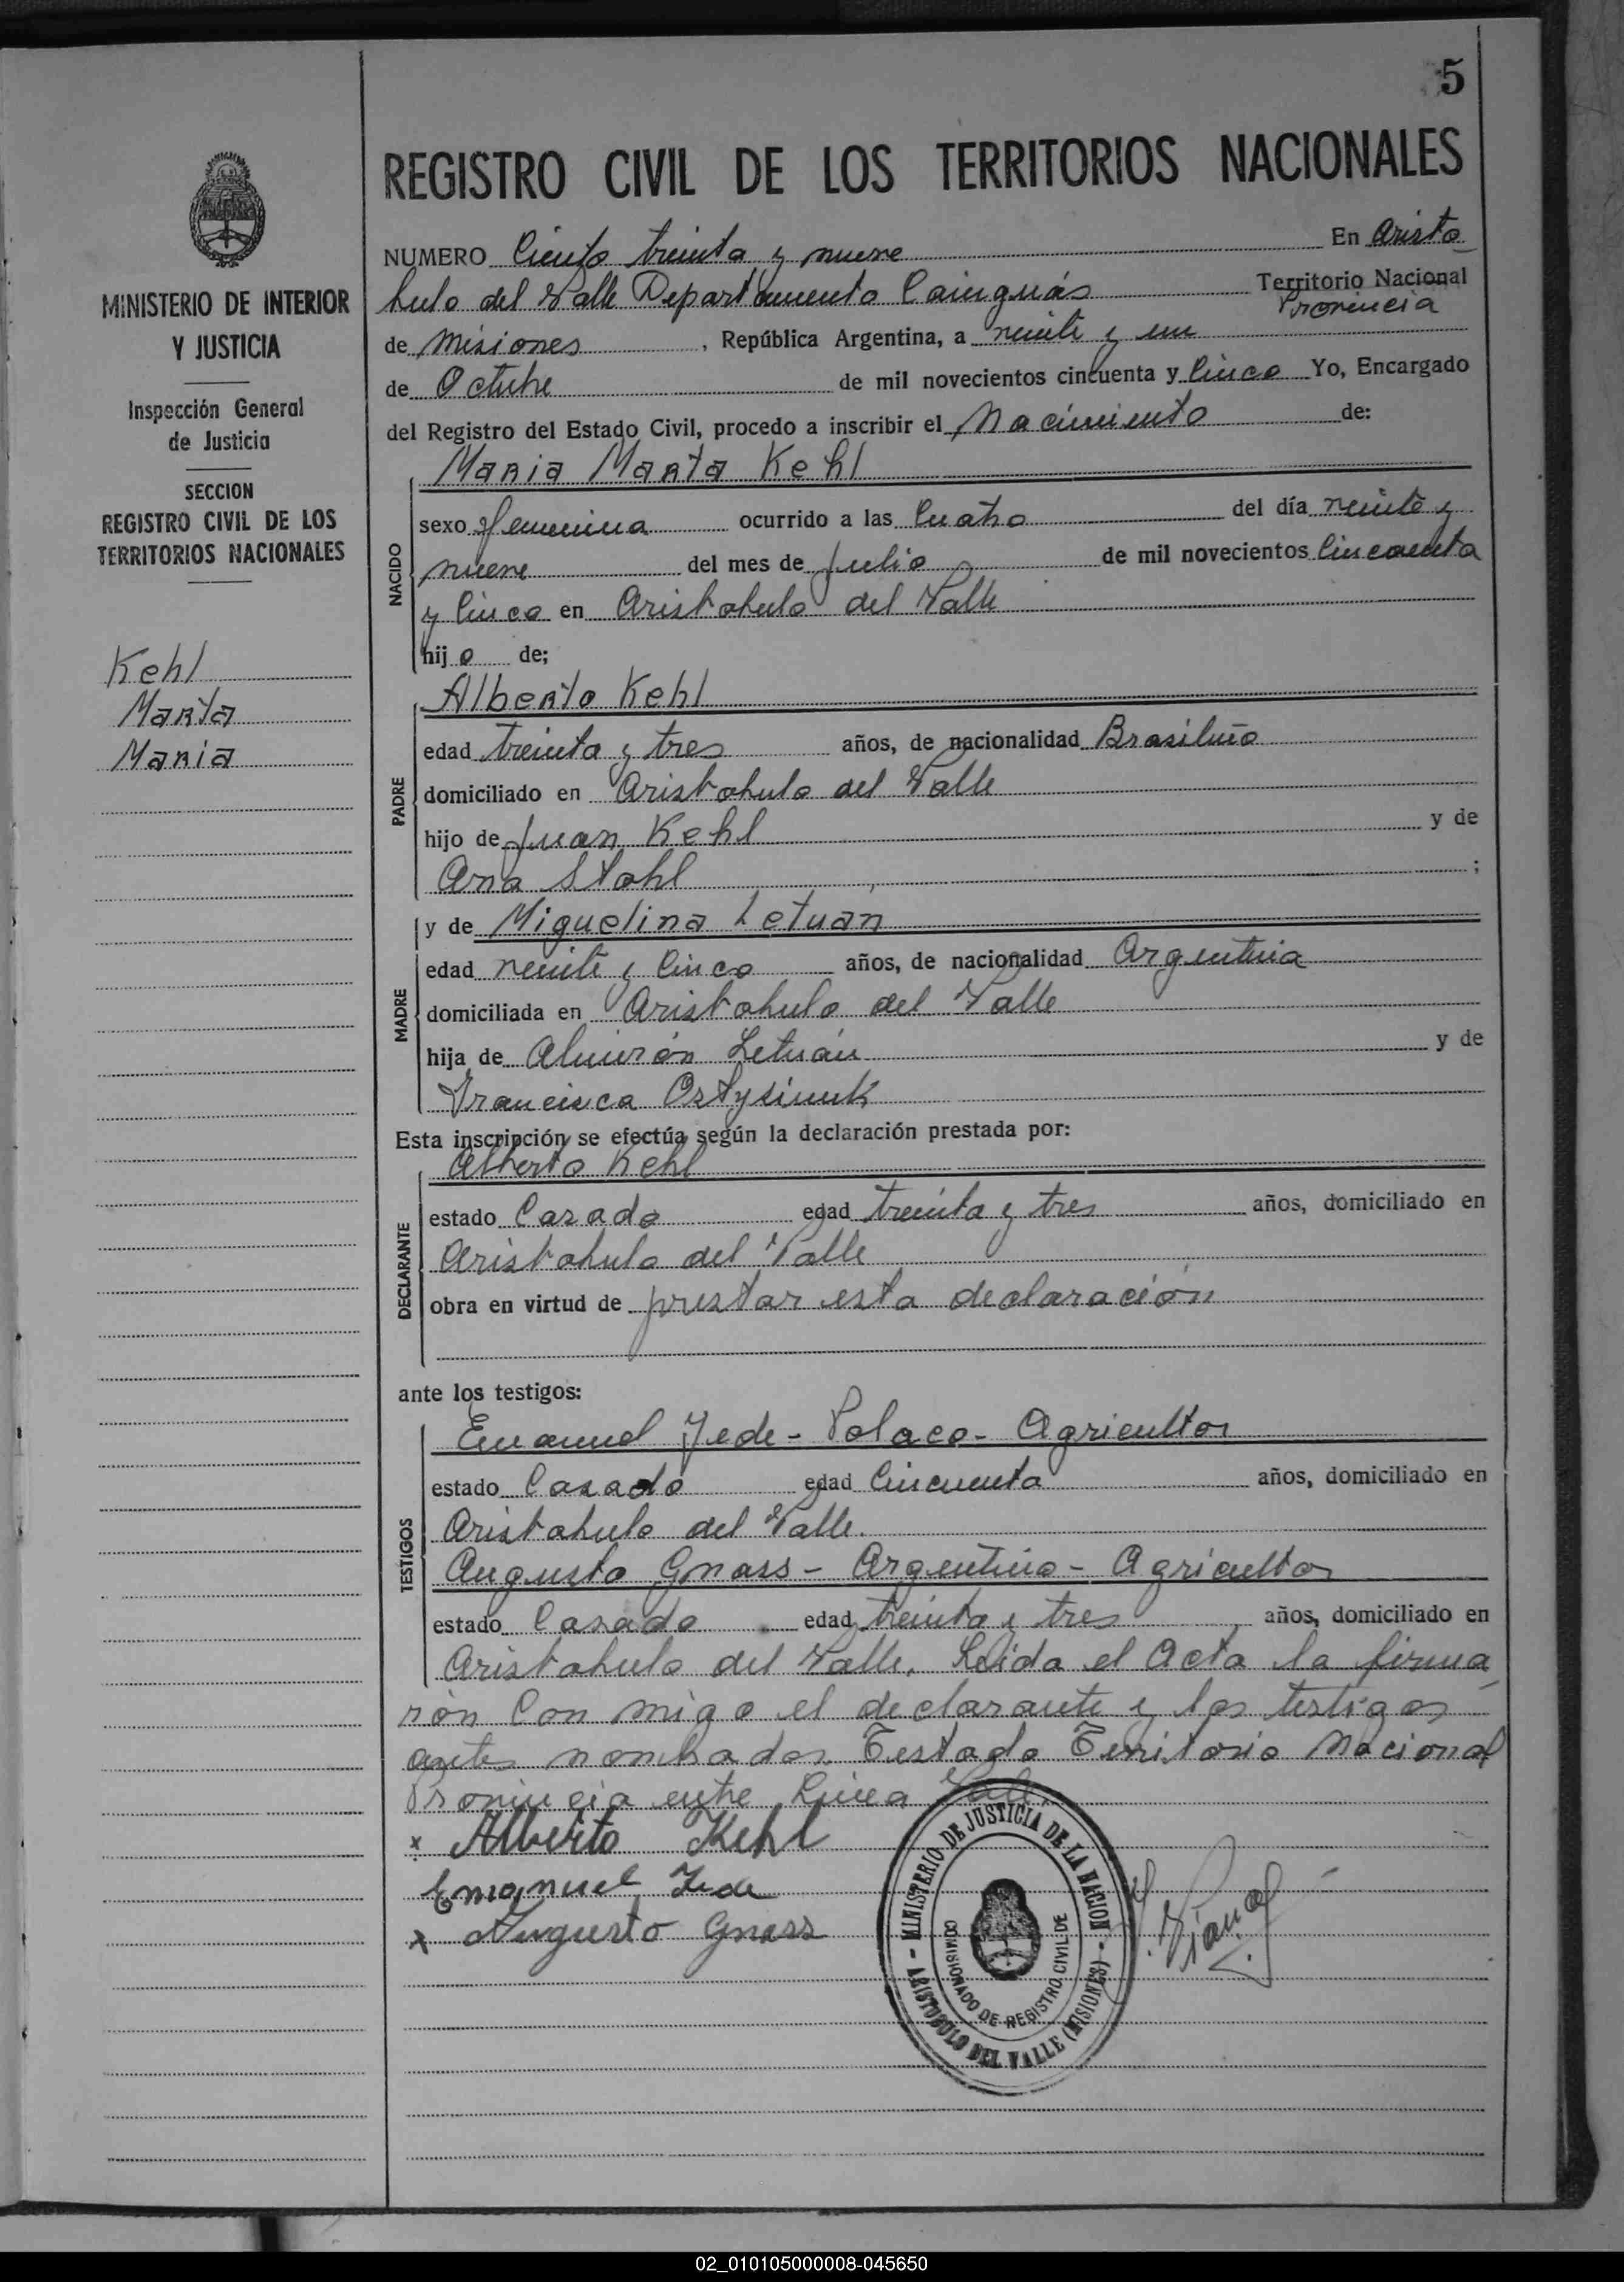 5
REGISTRO CIVIL DE LOS TERRITORIOS NACIONALES
NUMERO Ciento treinta y nueve En Aristó
bulo del Valle Departamento Cainguás Territorio Nacional
Provincia
de Misiones, República Argentina, a veinte y un
de Octubre de mil novecientos cincuenta y Cinco Yo, Encargado
del Registro del Estado Civil, procedo a inscribir el Nacimiento de:
Maria Marta Kehl
NACIDO
sexo femenina ocurrido a las Cuatro del día veinte y
nueve del mes de Julio de mil novecientos Cincuenta
y Cinco en Aristobulo del Valle
hijo de;
MINISTERIO DE INTERIOR
Y JUSTICIA
Inspección General
de Justicia
SECCION
REGISTRO CIVIL DE LOS
TERRITORIOS NACIONALES
Kehl
Marta
Maria
Alberto Kehl
PADRE
edad treinta y tres años, de nacionalidad Brasileño
domiciliado en Aristobulo del Valle
hijo de Juan Kehl y de
Ana Stahl ;
y de Miguelina Letuan
MADRE
edad veinte y Cinco años, de nacionalidad Argentina
domiciliada en Aristobulo del Valle
hija de Letuán y de
Francisca
Esta inscripción se efectúa según la declaración prestada por:
Alberto Kehl
DECLARANTE
estado Casado edad treinta y tres años, domiciliado en
Aristobulo del Valle
obra en virtud de prestar esta declaración
ante los testigos:
TESTIGOS
Emanuel Jede - Polaco - Agricultor
estado Casado edad Cincuenta años, domiciliado en
Aristobulo del Valle.
Augusto Gnass - Argentino - Agricultor
estado Casado edad treinta y tres años, domiciliado en
Aristobulo del Valle. Leida el Acta la firma
ron Con migo el declarante y los testigos
antes nombrados Testado Territorio Nacional
Provincia entre Linea Vale.
x Alberto Kehl
Emanuel Jede
x Augusto Gnass
MINISTERIO DE JUSTICIA DE LA NACION
COMISIONADO DE REGISTRO CIVIL DE
ARISTOBULO DEL VALLE (MISIONES)
02_010105000008-045650